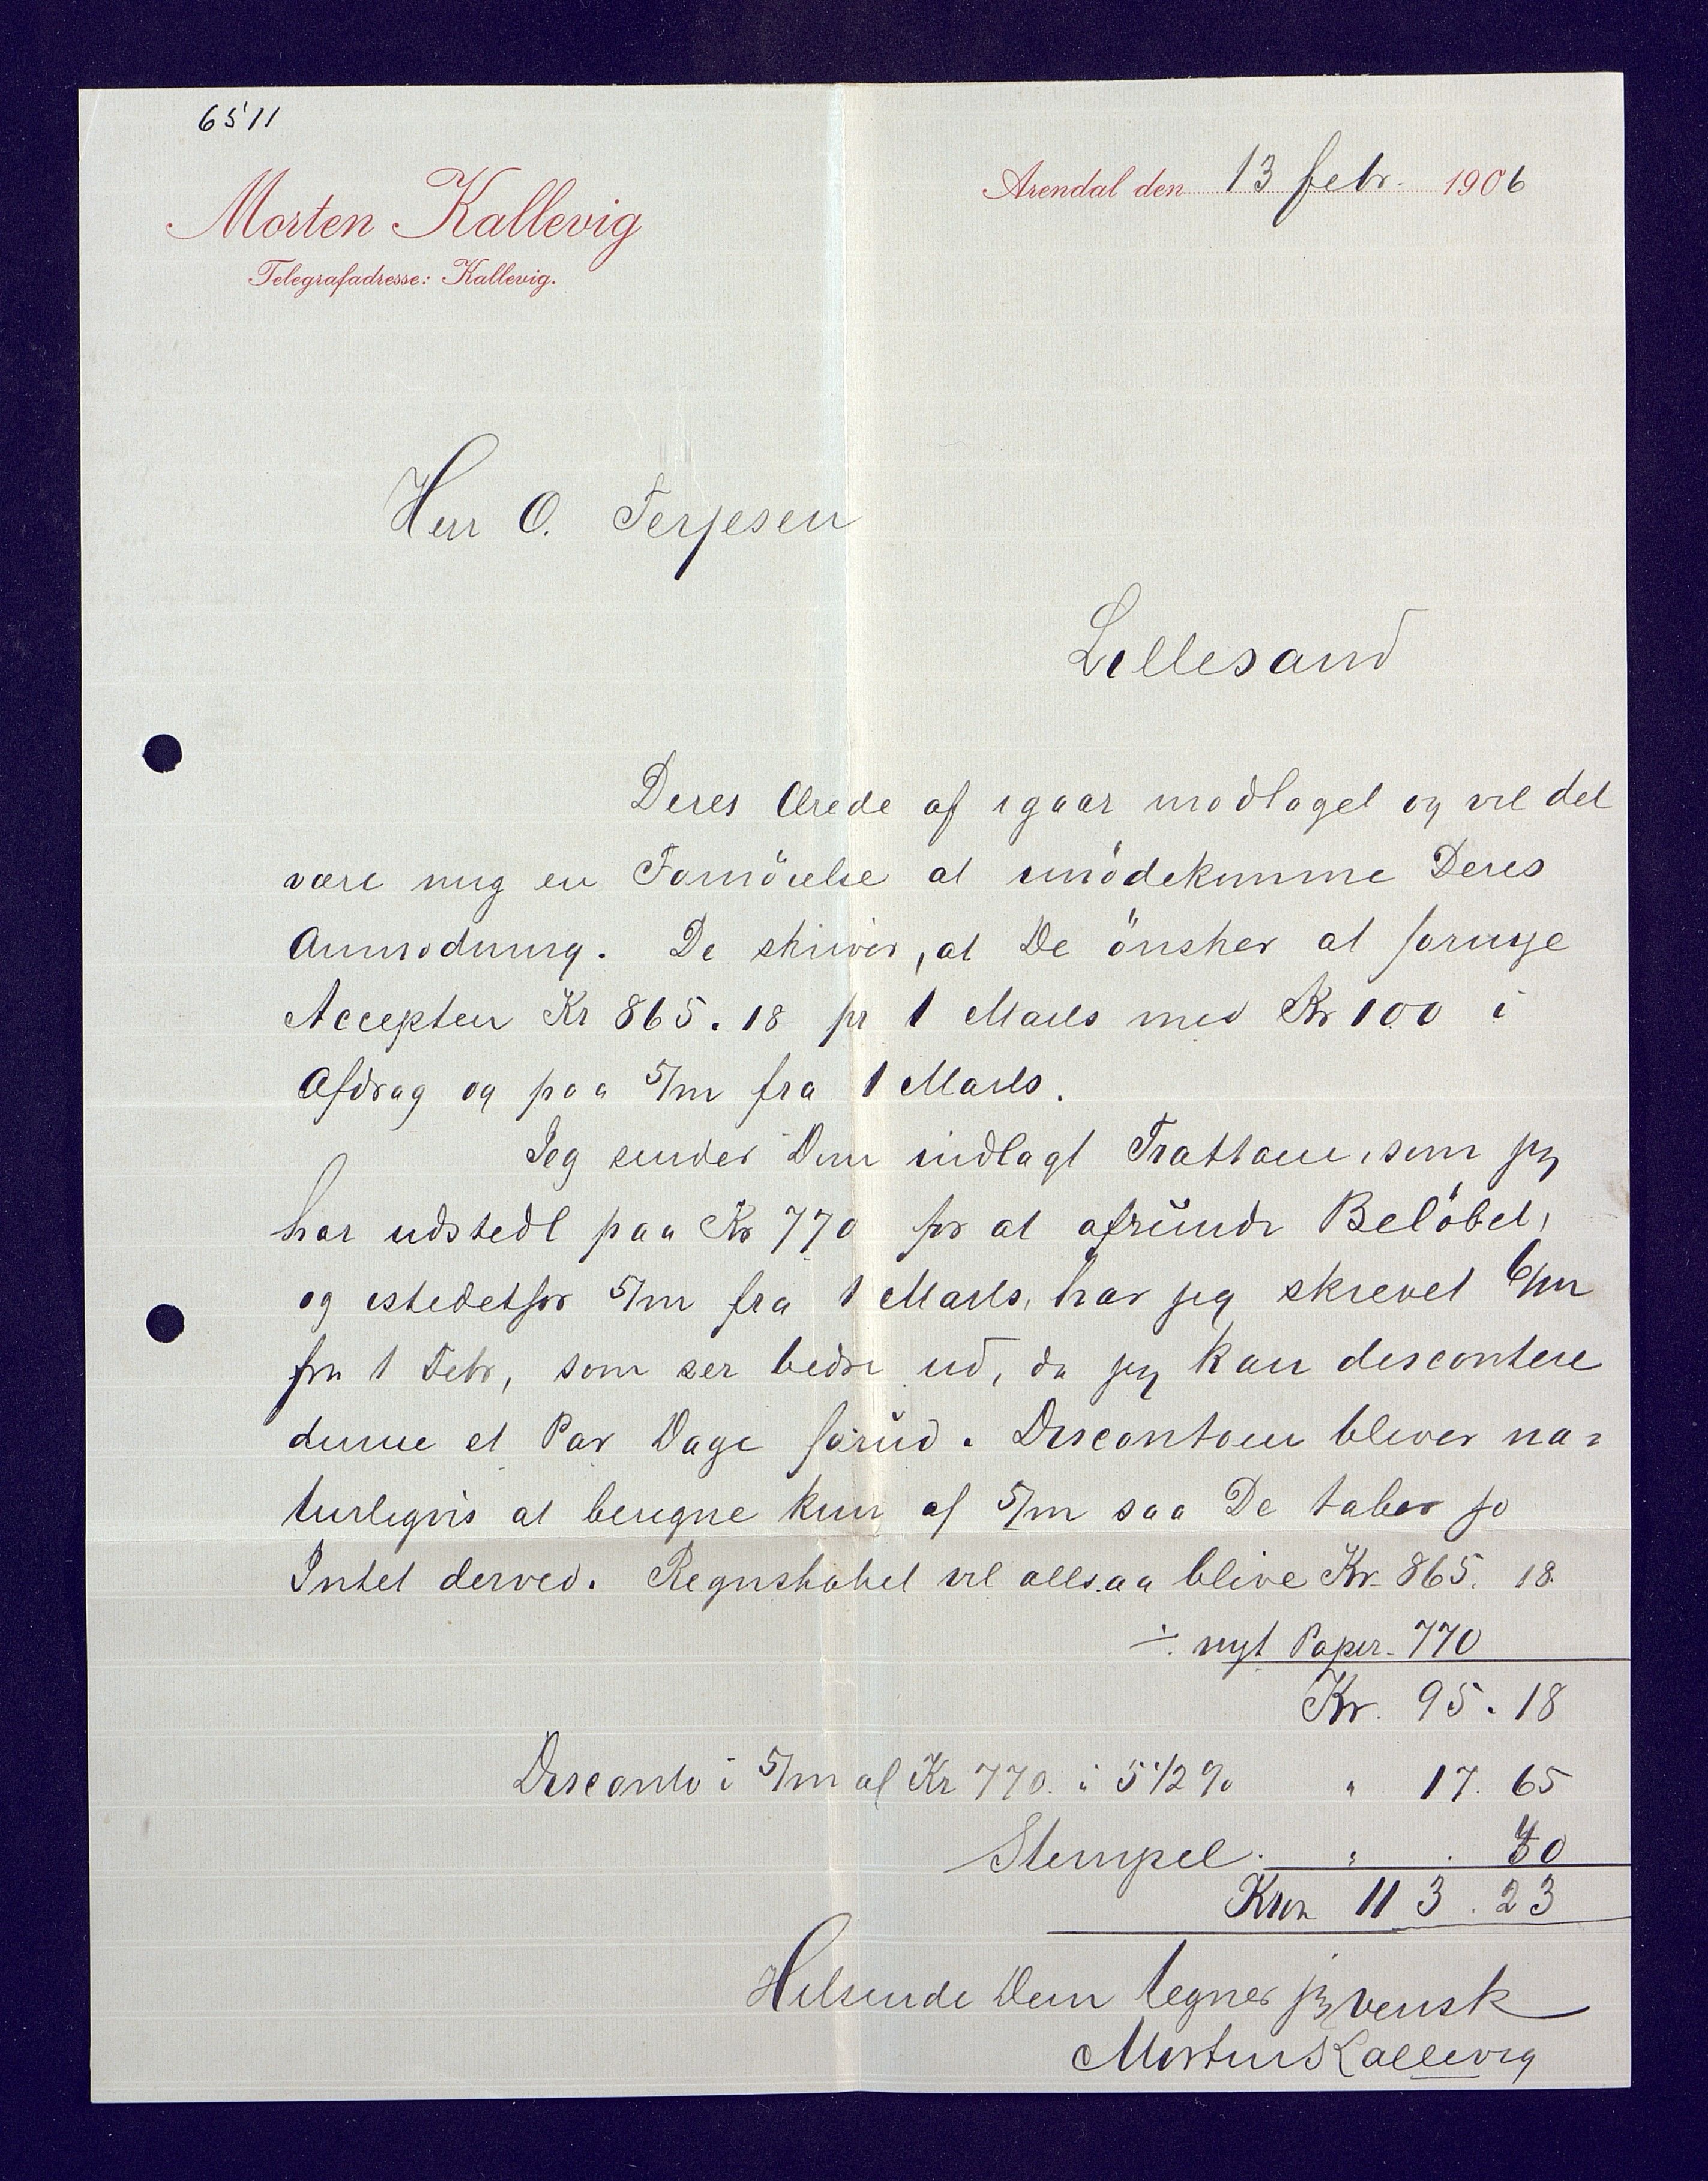 6511
Morten Kallevig
Telegrafadresse: Kallevig.
Arendal den 13 febr. 1906
Herr O. Terjesen
Lillesand
Deres Ærede af igaar modtaget og vil det
være mig en Fornöielse at imödekomme Deres
Anmodning. De skriver, at De önsker at fornye
Accepten Kr 865.18 pr 1 Marts med Kr 100 i
Afdrag og paa 5/m fra 1 Marts.
Jeg sender Dem indlagt Trattaen, som jeg
har udstedt paa Kr 770 for at afrunde Belöbet,
og istedetfor 5/m fra 1 Marts, har jeg skrevet 6/m
fra 1 Febr, som ser bedre ud, da jeg kan discontere
denne et Par Dage forud. Discontoen bliver na=
turligvis at beregne kun af 5/m saa De taber jo
Intet derved. Regnskabet vil altsaa blive Kr. 865. 18.
÷ nyt Papir. 770
Kr. 95.18
Disconto i 5/m af Kr 770. à 5 1/2 % " 17. 65
Stempel. " . 40
Kron 113.23
Hilsende Dem tegner jeg vensk
Morten Kallevig